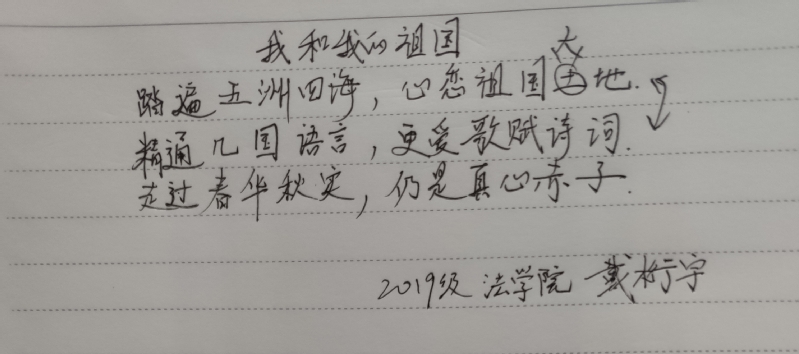 我和我的祖国
踏遍五洲四海，心恋祖国大地.
精通几国语言，更爱歌赋诗词.
走过春华秋实，仍是真心赤子.
2019级 法学院 戴桁宇